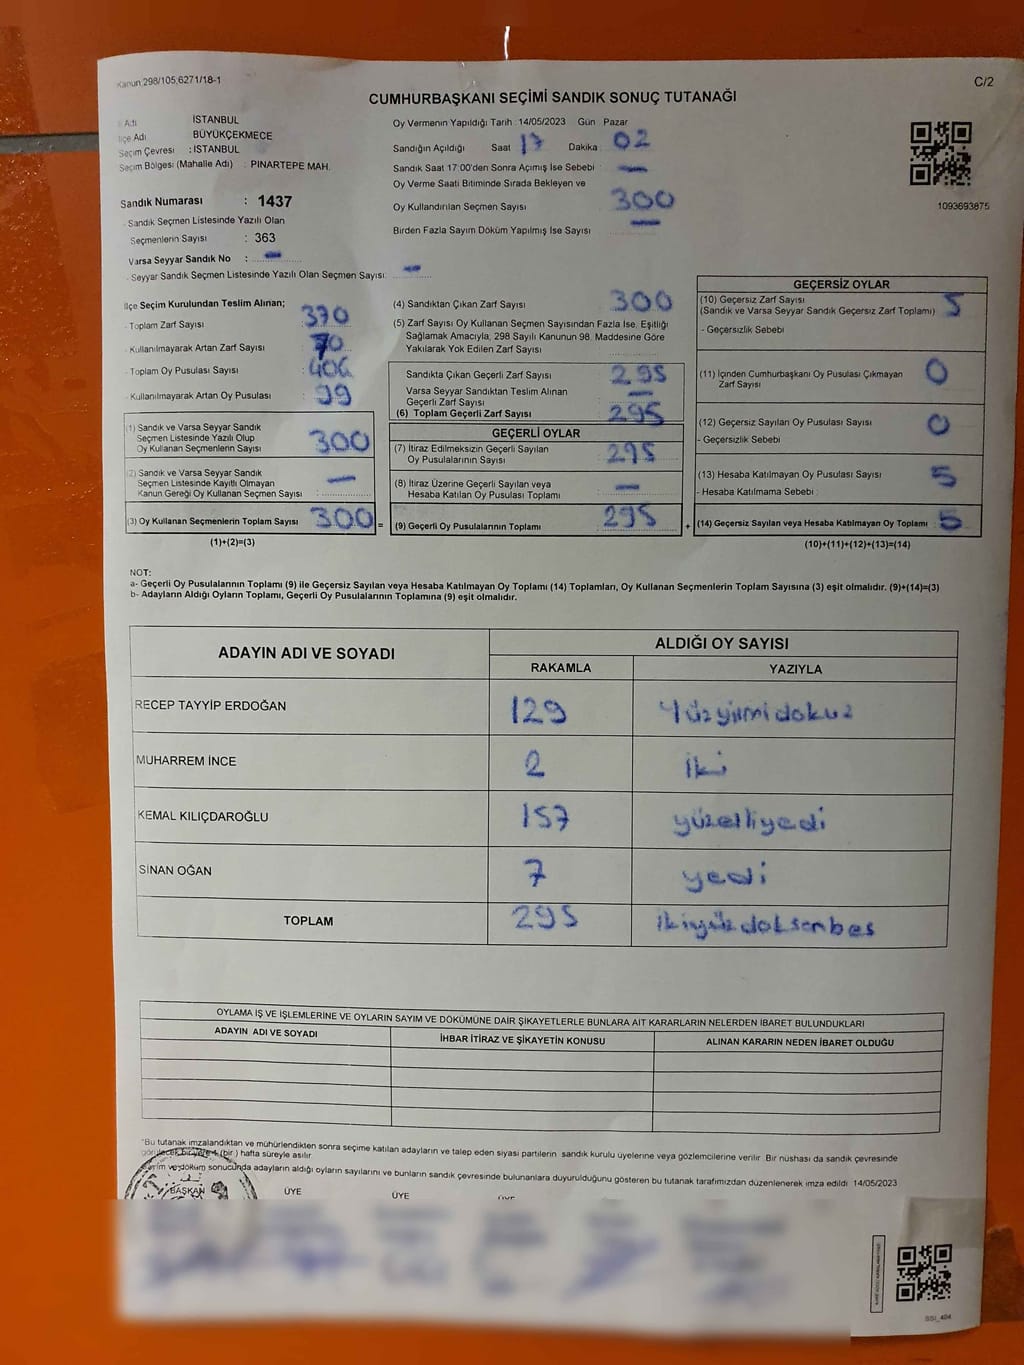 Kanun 298/105,6271/18-1
C/2
CUMHURBAŞKANI SEÇİMİ SANDIK SONUÇ TUTANAĞI
İl Adı İSTANBUL
İlçe Adı BÜYÜKÇEKMECE
Seçim Çevresi : İSTANBUL
Seçim Bölgesi (Mahalle Adı) : PINARTEPE MAH.
Sandık Numarası : 1437
- Sandık Seçmen Listesinde Yazılı Olan
Seçmenlerin Sayısı : 363
Varsa Seyyar Sandık No : —
- Seyyar Sandık Seçmen Listesinde Yazılı Olan Seçmen Sayısı: —
Oy Vermenin Yapıldığı Tarih : 14/05/2023 Gün Pazar
Sandığın Açıldığı Saat 17 Dakika 02
Sandık Saat 17:00'den Sonra Açımış İse Sebebi —
Oy Verme Saati Bitiminde Sırada Bekleyen ve
Oy Kullandırılan Seçmen Sayısı 300
Birden Fazla Sayım Döküm Yapılmış İse Sayısı —
1093693875
İlçe Seçim Kurulundan Teslim Alınan;
- Toplam Zarf Sayısı : 370
- Kullanılmayarak Artan Zarf Sayısı : 70
- Toplam Oy Pusulası Sayısı : 406
- Kullanılmayarak Artan Oy Pusulası : 99
(1) Sandık ve Varsa Seyyar Sandık
Seçmen Listesinde Yazılı Olup
Oy Kullanan Seçmenlerin Sayısı 300
(2) Sandık ve Varsa Seyyar Sandık
Seçmen Listesinde Kayıtlı Olmayan
Kanun Gereği Oy Kullanan Seçmen Sayısı —
(3) Oy Kullanan Seçmenlerin Toplam Sayısı 300 =
(1)+(2)=(3)
(4) Sandıktan Çıkan Zarf Sayısı 300
(5) Zarf Sayısı Oy Kullanan Seçmen Sayısından Fazla İse, Eşitliği
Sağlamak Amacıyla, 298 Sayılı Kanunun 98. Maddesine Göre
Yakılarak Yok Edilen Zarf Sayısı
Sandıkta Çıkan Geçerli Zarf Sayısı 295
Varsa Seyyar Sandıktan Teslim Alınan
Geçerli Zarf Sayısı —
(6) Toplam Geçerli Zarf Sayısı 295
GEÇERLİ OYLAR
(7) İtiraz Edilmeksizin Geçerli Sayılan
Oy Pusulalarının Sayısı 295
(8) İtiraz Üzerine Geçerli Sayılan veya
Hesaba Katılan Oy Pusulası Toplamı —
(9) Geçerli Oy Pusulalarının Toplamı 295 +
GEÇERSİZ OYLAR
(10) Geçersiz Zarf Sayısı
(Sandık ve Varsa Seyyar Sandık Geçersiz Zarf Toplamı) 5
- Geçersizlik Sebebi
(11) İçinden Cumhurbaşkanı Oy Pusulası Çıkmayan
Zarf Sayısı 0
(12) Geçersiz Sayılan Oy Pusulası Sayısı 0
- Geçersizlik Sebebi :
(13) Hesaba Katılmayan Oy Pusulası Sayısı 5
- Hesaba Katılmama Sebebi :
(14) Geçersiz Sayılan veya Hesaba Katılmayan Oy Toplamı 5
(10)+(11)+(12)+(13)=(14)
NOT:
a- Geçerli Oy Pusulalarının Toplamı (9) ile Geçersiz Sayılan veya Hesaba Katılmayan Oy Toplamı (14) Toplamları, Oy Kullanan Seçmenlerin Toplam Sayısına (3) eşit olmalıdır. (9)+(14)=(3)
b- Adayların Aldığı Oyların Toplamı, Geçerli Oy Pusulalarının Toplamına (9) eşit olmalıdır.
ADAYIN ADI VE SOYADI ALDIĞI OY SAYISI
RAKAMLA YAZIYLA
RECEP TAYYİP ERDOĞAN 129 Yüzyirmidokuz
MUHARREM İNCE 2 iki
KEMAL KILIÇDAROĞLU 157 yüzelliyedi
SİNAN OĞAN 7 yedi
TOPLAM 295 ikiyüzdoksanbes
OYLAMA İŞ VE İŞLEMLERİNE VE OYLARIN SAYIM VE DÖKÜMÜNE DAİR ŞİKAYETLERLE BUNLARA AİT KARARLARIN NELERDEN İBARET BULUNDUKLARI
ADAYIN ADI VE SOYADI İHBAR İTİRAZ VE ŞİKAYETİN KONUSU ALINAN KARARIN NEDEN İBARET OLDUĞU
"Bu tutanak imzalandıktan ve mühürlendikten sonra seçime katılan adayların ve talep eden siyasi partilerin sandık kurulu üyelerine veya gözlemcilerine verilir. Bir nüshası da sandık çevresinde
görülecek bir yere 1 (bir) hafta süreyle asılır.
Sayım ve döküm sonucunda adayların aldığı oyların sayılarını ve bunların sandık çevresinde bulunanlara duyurulduğunu gösteren bu tutanak tarafımızdan düzenlenerek imza edildi. 14/05/2023
BAŞKAN ÜYE ÜYE ÜYE